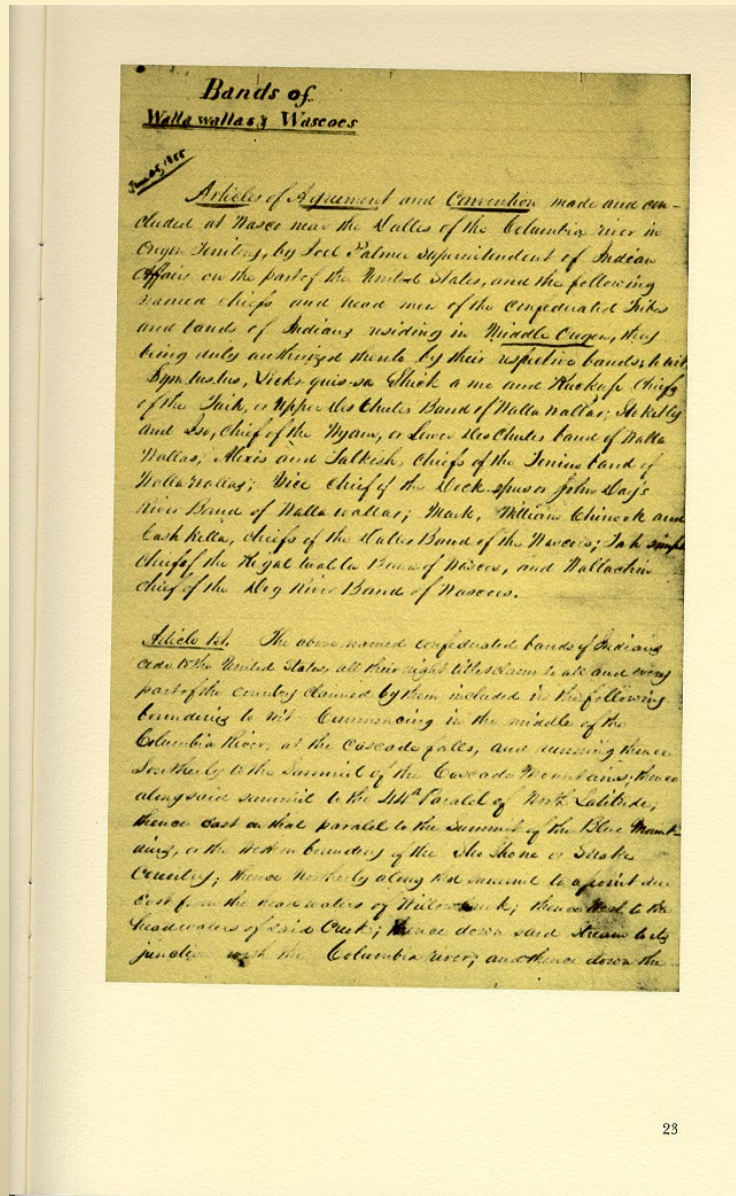 Bands of
Walla wallas & Wascoes
June 25, 1855
Articles of Agreement and Convention made and con-
cluded at Wasco near the Dalles of the Columbia river in
Oregon Territory, by Joel Palmer Superintendent of Indian
Affairs on the part of the United States, and the following
named chiefs and head men of the confederated Tribes
and bands of Indians residing in Middle Oregon, they
being duly authorized thereto by their respective bands; to wit,
Symtustus, Locks-quis-sa and Kuckup Chiefs
of the Taih, or Upper Des Chutes Band of Walla Wallas; Stocketly
and Iso, Chiefs of the Wyam, or Lower Des Chutes band of Walla
Wallas; Alexis and Talkish, Chiefs of the Tenino band of
Walla wallas; Yice Chief of the Dock-spus or John Day's
River Band of Walla wallas; Mark, William Chinook and
Cush Kella, chiefs of the Dalles Band of the Wascoes; Toh simph
chief of the Band of Wascoes, and Wallachin
chief of the Dog River Band of Wascoes.
Article 1st. The above named confederated bands of Indians
cede to the United States, all their right title & claim to all and every
part of the country claimed by them included in the following
boundaries to wit Commencing in the middle of the
Columbia River, at the Cascade falls, and running thence
Southerly to the Summit of the Cascade Mountains; thence
along said summit to the 44th Paralel of North Latitude;
thence East on that paralel to the Summit of the Blue Mount-
ains, or the western boundary of the Sho Shone or Snake
Country; thence Northerly along that summit to a point due
East from the head waters of Willow Creek; thence West to the
headwaters of said Creek; thence down said Stream to its
junction with the Columbia river; and thence down the
23